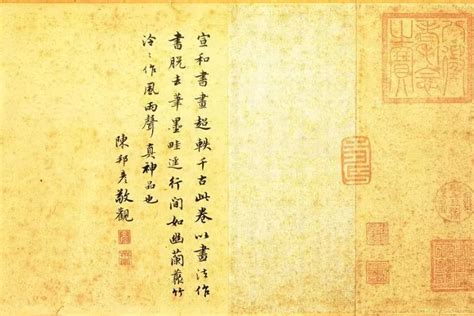 八徵
耄念
之寶
宣和書畫超軼千古此卷以畫法作
書脫去筆墨畦逕行間如幽蘭叢竹
泠〻作風雨聲真神品也
陳邦彥敬觀